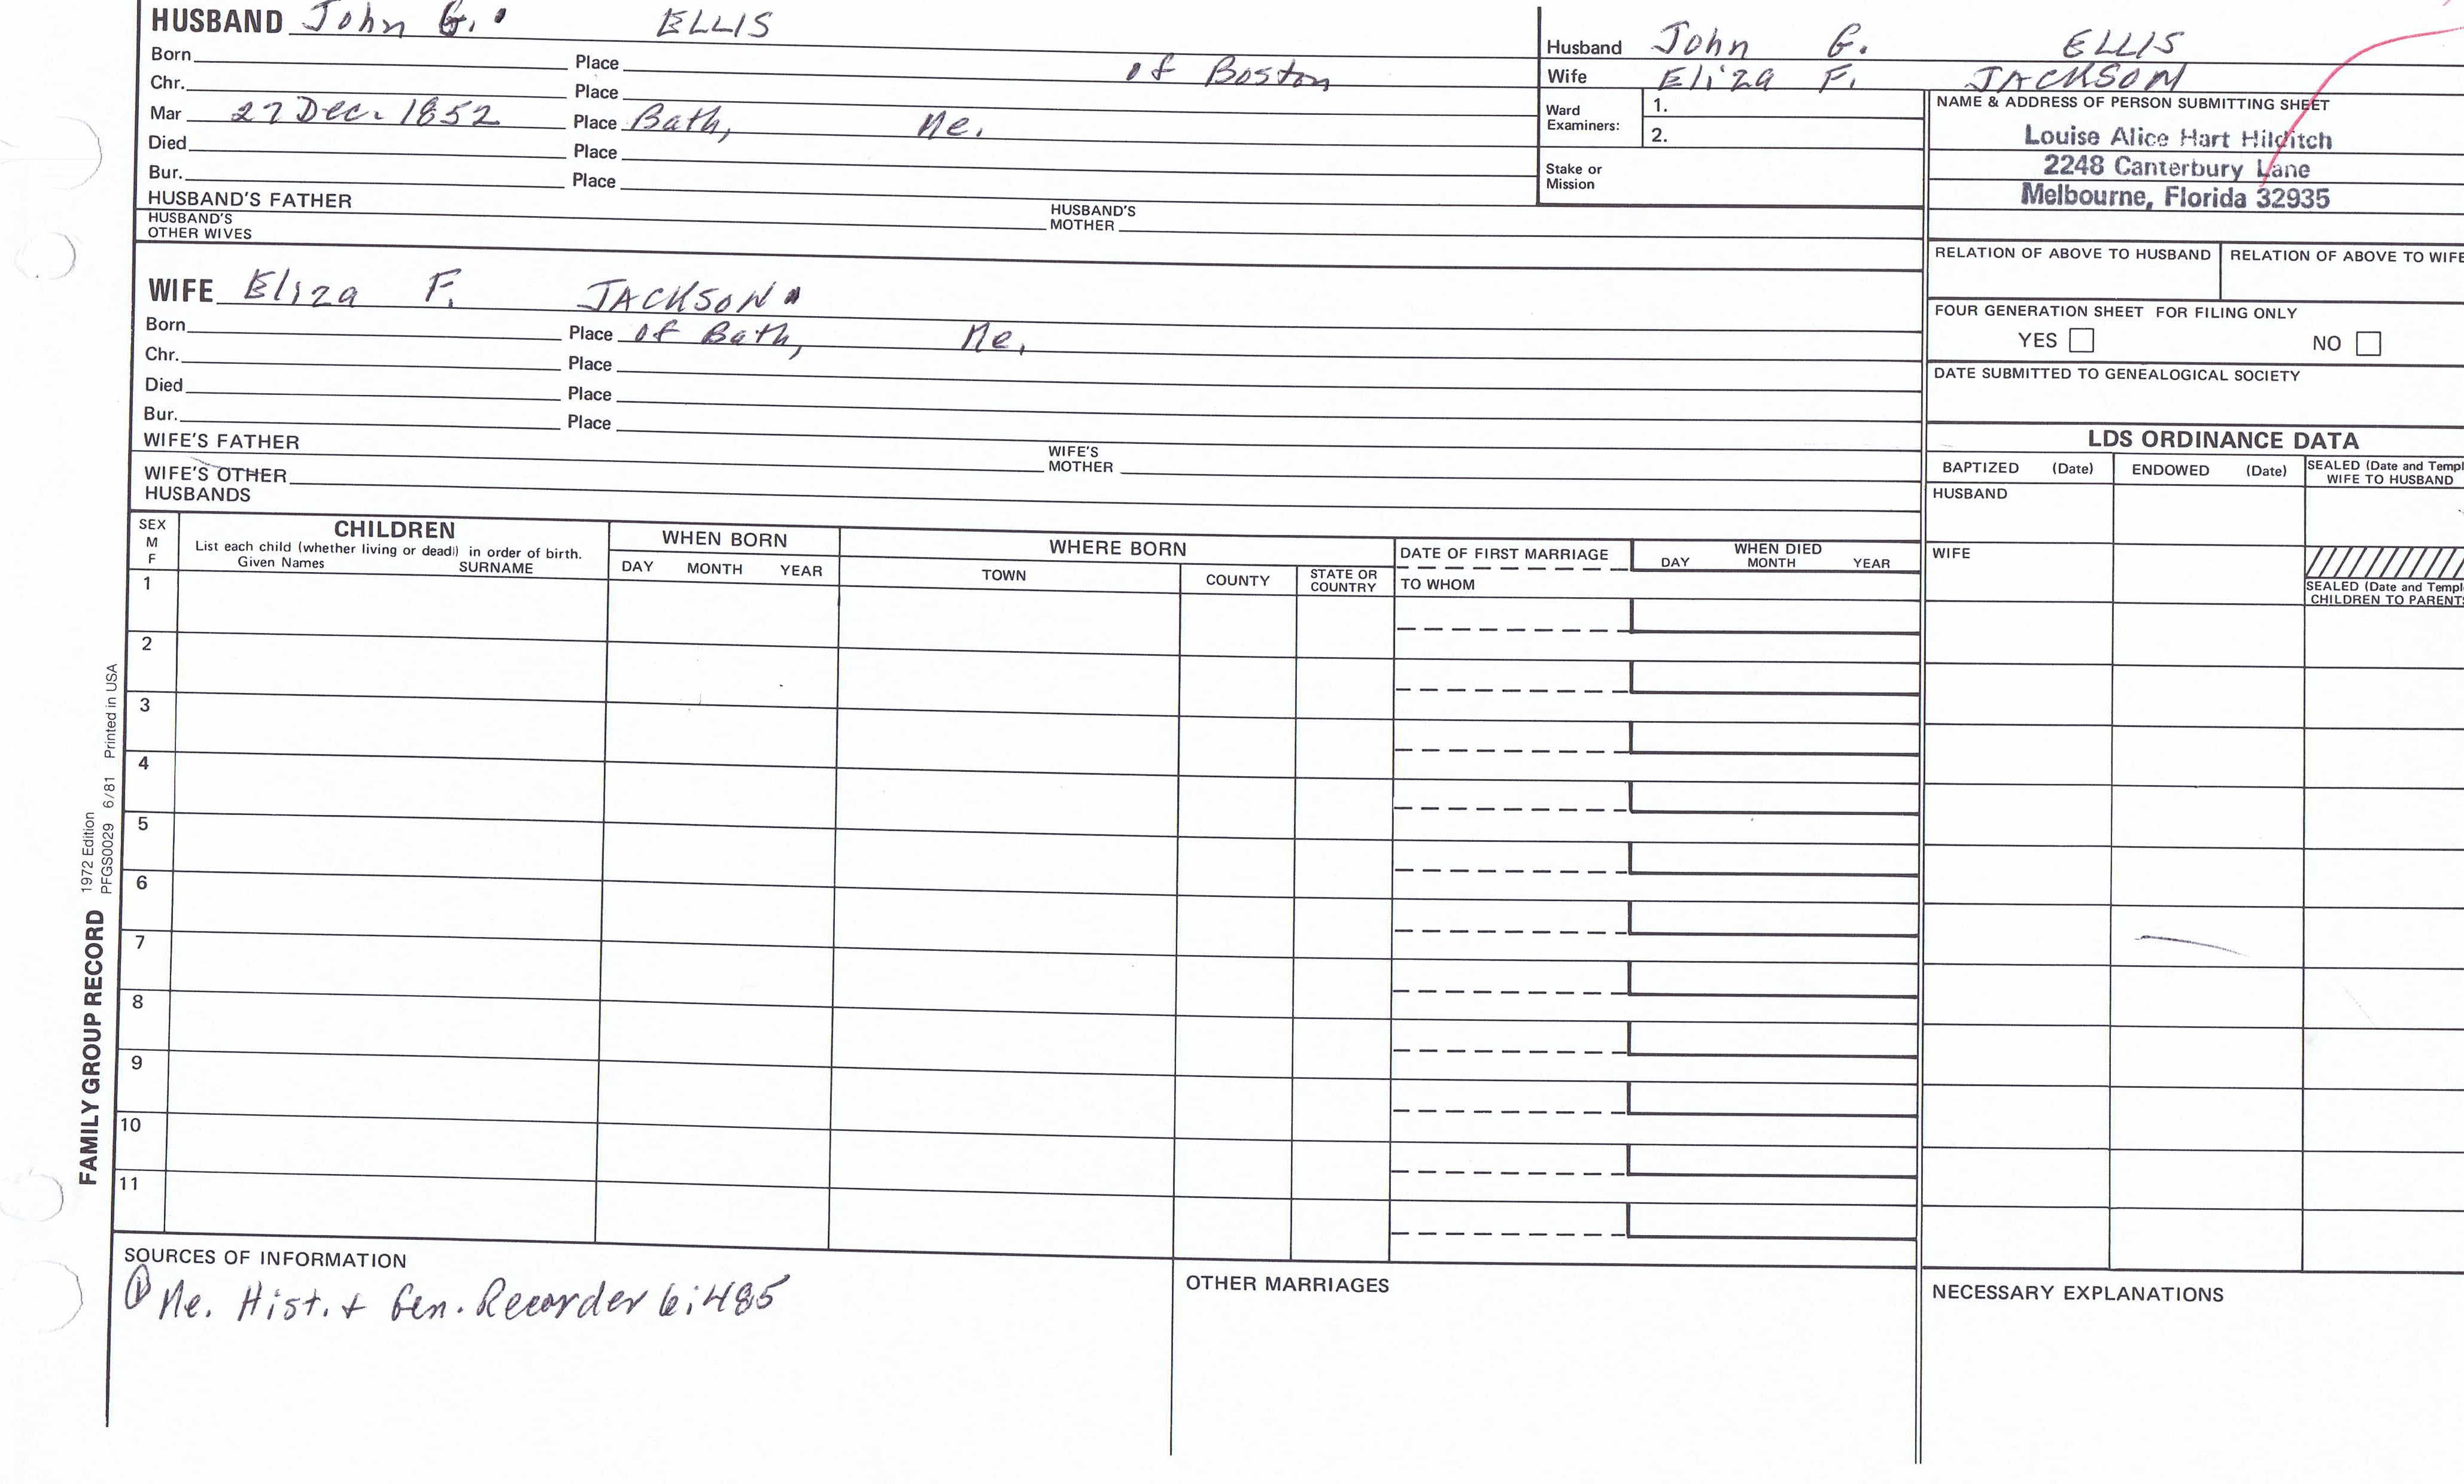 HUSBAND John G. ELLIS
Born Place of Boston
Chr. Place
Mar 27 Dec. 1852 Place Bath, Me.
Died Place
Bur. Place
HUSBAND'S FATHER HUSBAND'S MOTHER
HUSBAND'S OTHER WIVES
Husband John G. ELLIS
Wife Eliza F. JACKSON
Ward Examiners: 1.
2.
Stake or Mission
NAME & ADDRESS OF PERSON SUBMITTING SHEET
Louise Alice Hart Hilditch
2248 Canterbury Lane
Melbourne, Florida 32935
RELATION OF ABOVE TO HUSBAND RELATION OF ABOVE TO WIFE
FOUR GENERATION SHEET FOR FILING ONLY
YES NO
DATE SUBMITTED TO GENEALOGICAL SOCIETY
WIFE Eliza F. JACKSON
Born Place of Bath, Me.
Chr. Place
Died Place
Bur. Place
WIFE'S FATHER WIFE'S MOTHER
WIFE'S OTHER HUSBANDS
LDS ORDINANCE DATA
BAPTIZED (Date) ENDOWED (Date) SEALED (Date and Templ
WIFE TO HUSBAND
HUSBAND
WIFE
SEALED (Date and Templ
CHILDREN TO PARENTS
SEX
M
F
CHILDREN
List each child (whether living or dead) in order of birth.
Given Names SURNAME
WHEN BORN
DAY MONTH YEAR
WHERE BORN
TOWN COUNTY STATE OR COUNTRY
DATE OF FIRST MARRIAGE
TO WHOM
WHEN DIED
DAY MONTH YEAR
1
2
3
4
5
6
7
8
9
10
11
FAMILY GROUP RECORD
1972 Edition
PFGS0029 6/81 Printed in USA
SOURCES OF INFORMATION
① Me. Hist. + Gen. Recorder 6:485
OTHER MARRIAGES
NECESSARY EXPLANATIONS